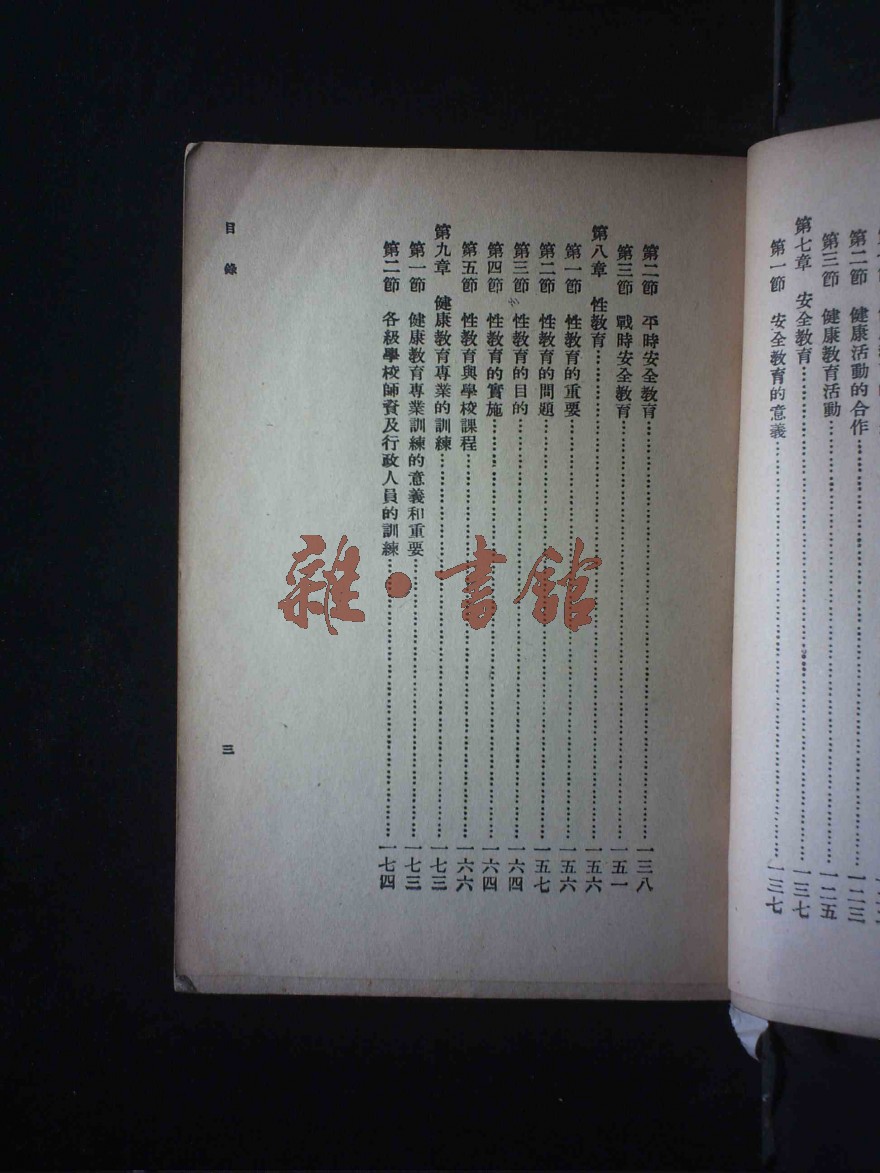 第二節 健康活動的合作…一二三
第三節 健康教育活動…一二五
第七章 安全教育…一三七
第一節 安全教育的意義…一三七
第二節 平時安全教育…一三八
第三節 戰時安全教育…一五一
第八章 性教育…一五六
第一節 性教育的重要…一五六
第二節 性教育的問題…一五七
第三節 性教育的目的…一六四
第四節 性教育的實施…一六四
第五節 性教育與學校課程…一六六
第九章 健康教育專業的訓練…一七三
第一節 健康教育專業訓練的意義和重要…一七三
第二節 各級學校師資及行政人員的訓練…一七四
目錄
三
雜·書館